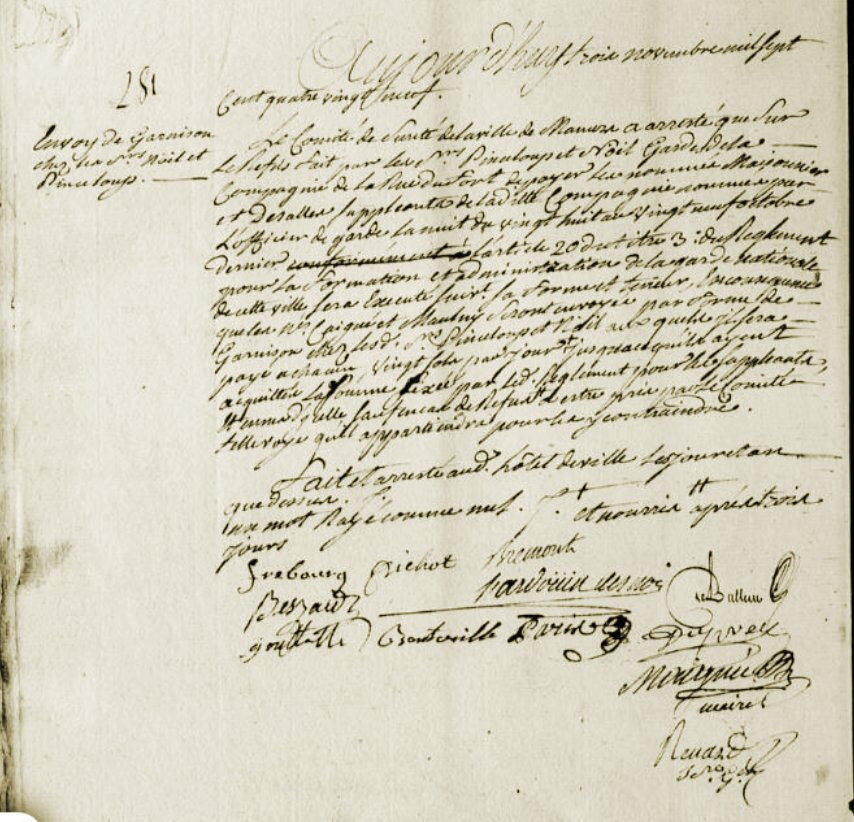 281
Envoy de Garnison
chez les Srs. Noël et
Pineloup.
Aujourd'huy trois novembre mil sept
Cent quatre vingt neuf.
Le Comité de Sureté de la ville de a arresté que Sur
le Refus fait par les Srs. Pineloup et Noël Garde de la
Compagnie de la Rue du Fort de payer les nommés
et Desalles suppleants de la ditte Compagnie nommés par
L'officier de garde la nuit du vingt huit au vingt neuf octobre
dernier conformément à l'article 20 du titre 3e. du Reglement
pour la Formation et administration de la garde nationalle
de cette ville sera Executé suivt. sa forme et teneur, En consequence
que les nés. Caigné et Maulny Seront envoyés par forme de
Garnison chez lesd. Srs. Pineloup et Noël aux quels il sera
payé a chacun vingt sols par jour † jusqu'a ce qu'ils ayent
acquitté la somme fixée par led. Reglement pour les suppleants,
†† sauf en cas de Refus d'estre pris par le Comité
telle voye qu'il appartiendra pour les y contraindre.
Fait et arresté aud. hôtel de ville les jour et an
que dessus.
un mot Rayé comme nul. † et nourris †† après trois
jours
Frebourg Richot Bremont
Bessaud hardoüin desnos
Paris
Duprey
maire
Renard